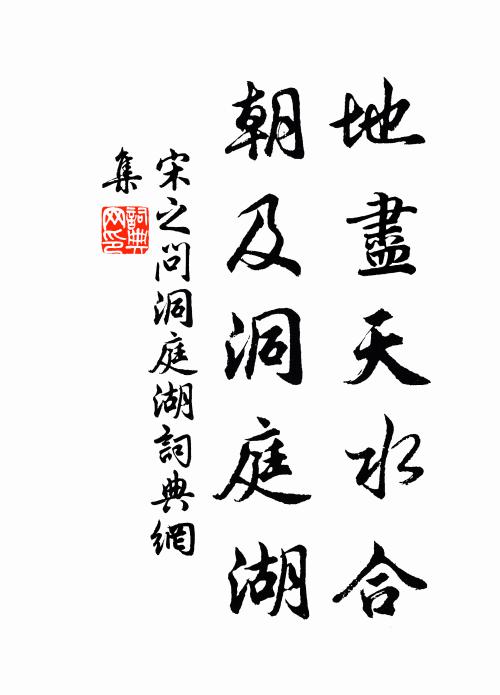 地盡天水合
朝及洞庭湖
宋之问洞庭湖詞典網
集
詞典
网印